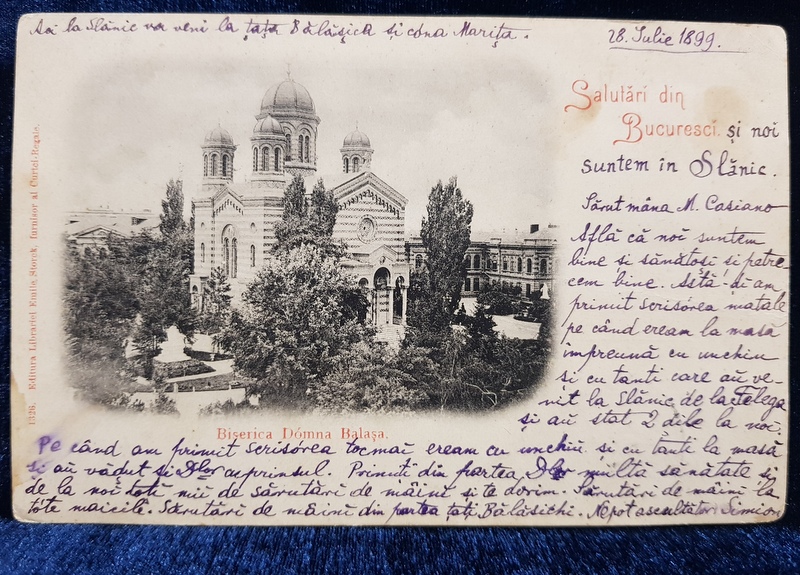 Azi la Slănic va veni la ța ța Bălășica si cóna Marița.
28. Iulie 1899.
Salutări din
Bucuresci. și noi
suntem în Slănic.
Sărut mâna M. Casiano
Află că noi suntem
bine si sănătosi si petre-
cem bine. Astă-di am
primit scrisórea matale
pe când eream la masă
împreună cu unchiu
si cu tanti care aŭ ve-
nit la Slănic de la Telega
și aŭ stat 2 dile la noi.
1326. Editura Librăriei Emila Storck, furnisor al Curtei-Regale.
Biserica Dómna Balașa.
Pe când am primit scrisórea tocmai eream cu unchiu si cu tanti la masă
si aŭ vădut si Dlor cuprinsul. Primiti din partea Dlor multă sănătate si
de la noi toti mii de sărutări de mâini si te dorim. Sărutări de mâini la
tóte maicile. Sărutări de mâini din partea țați Bălăsichi. Nepot ascultător Simion